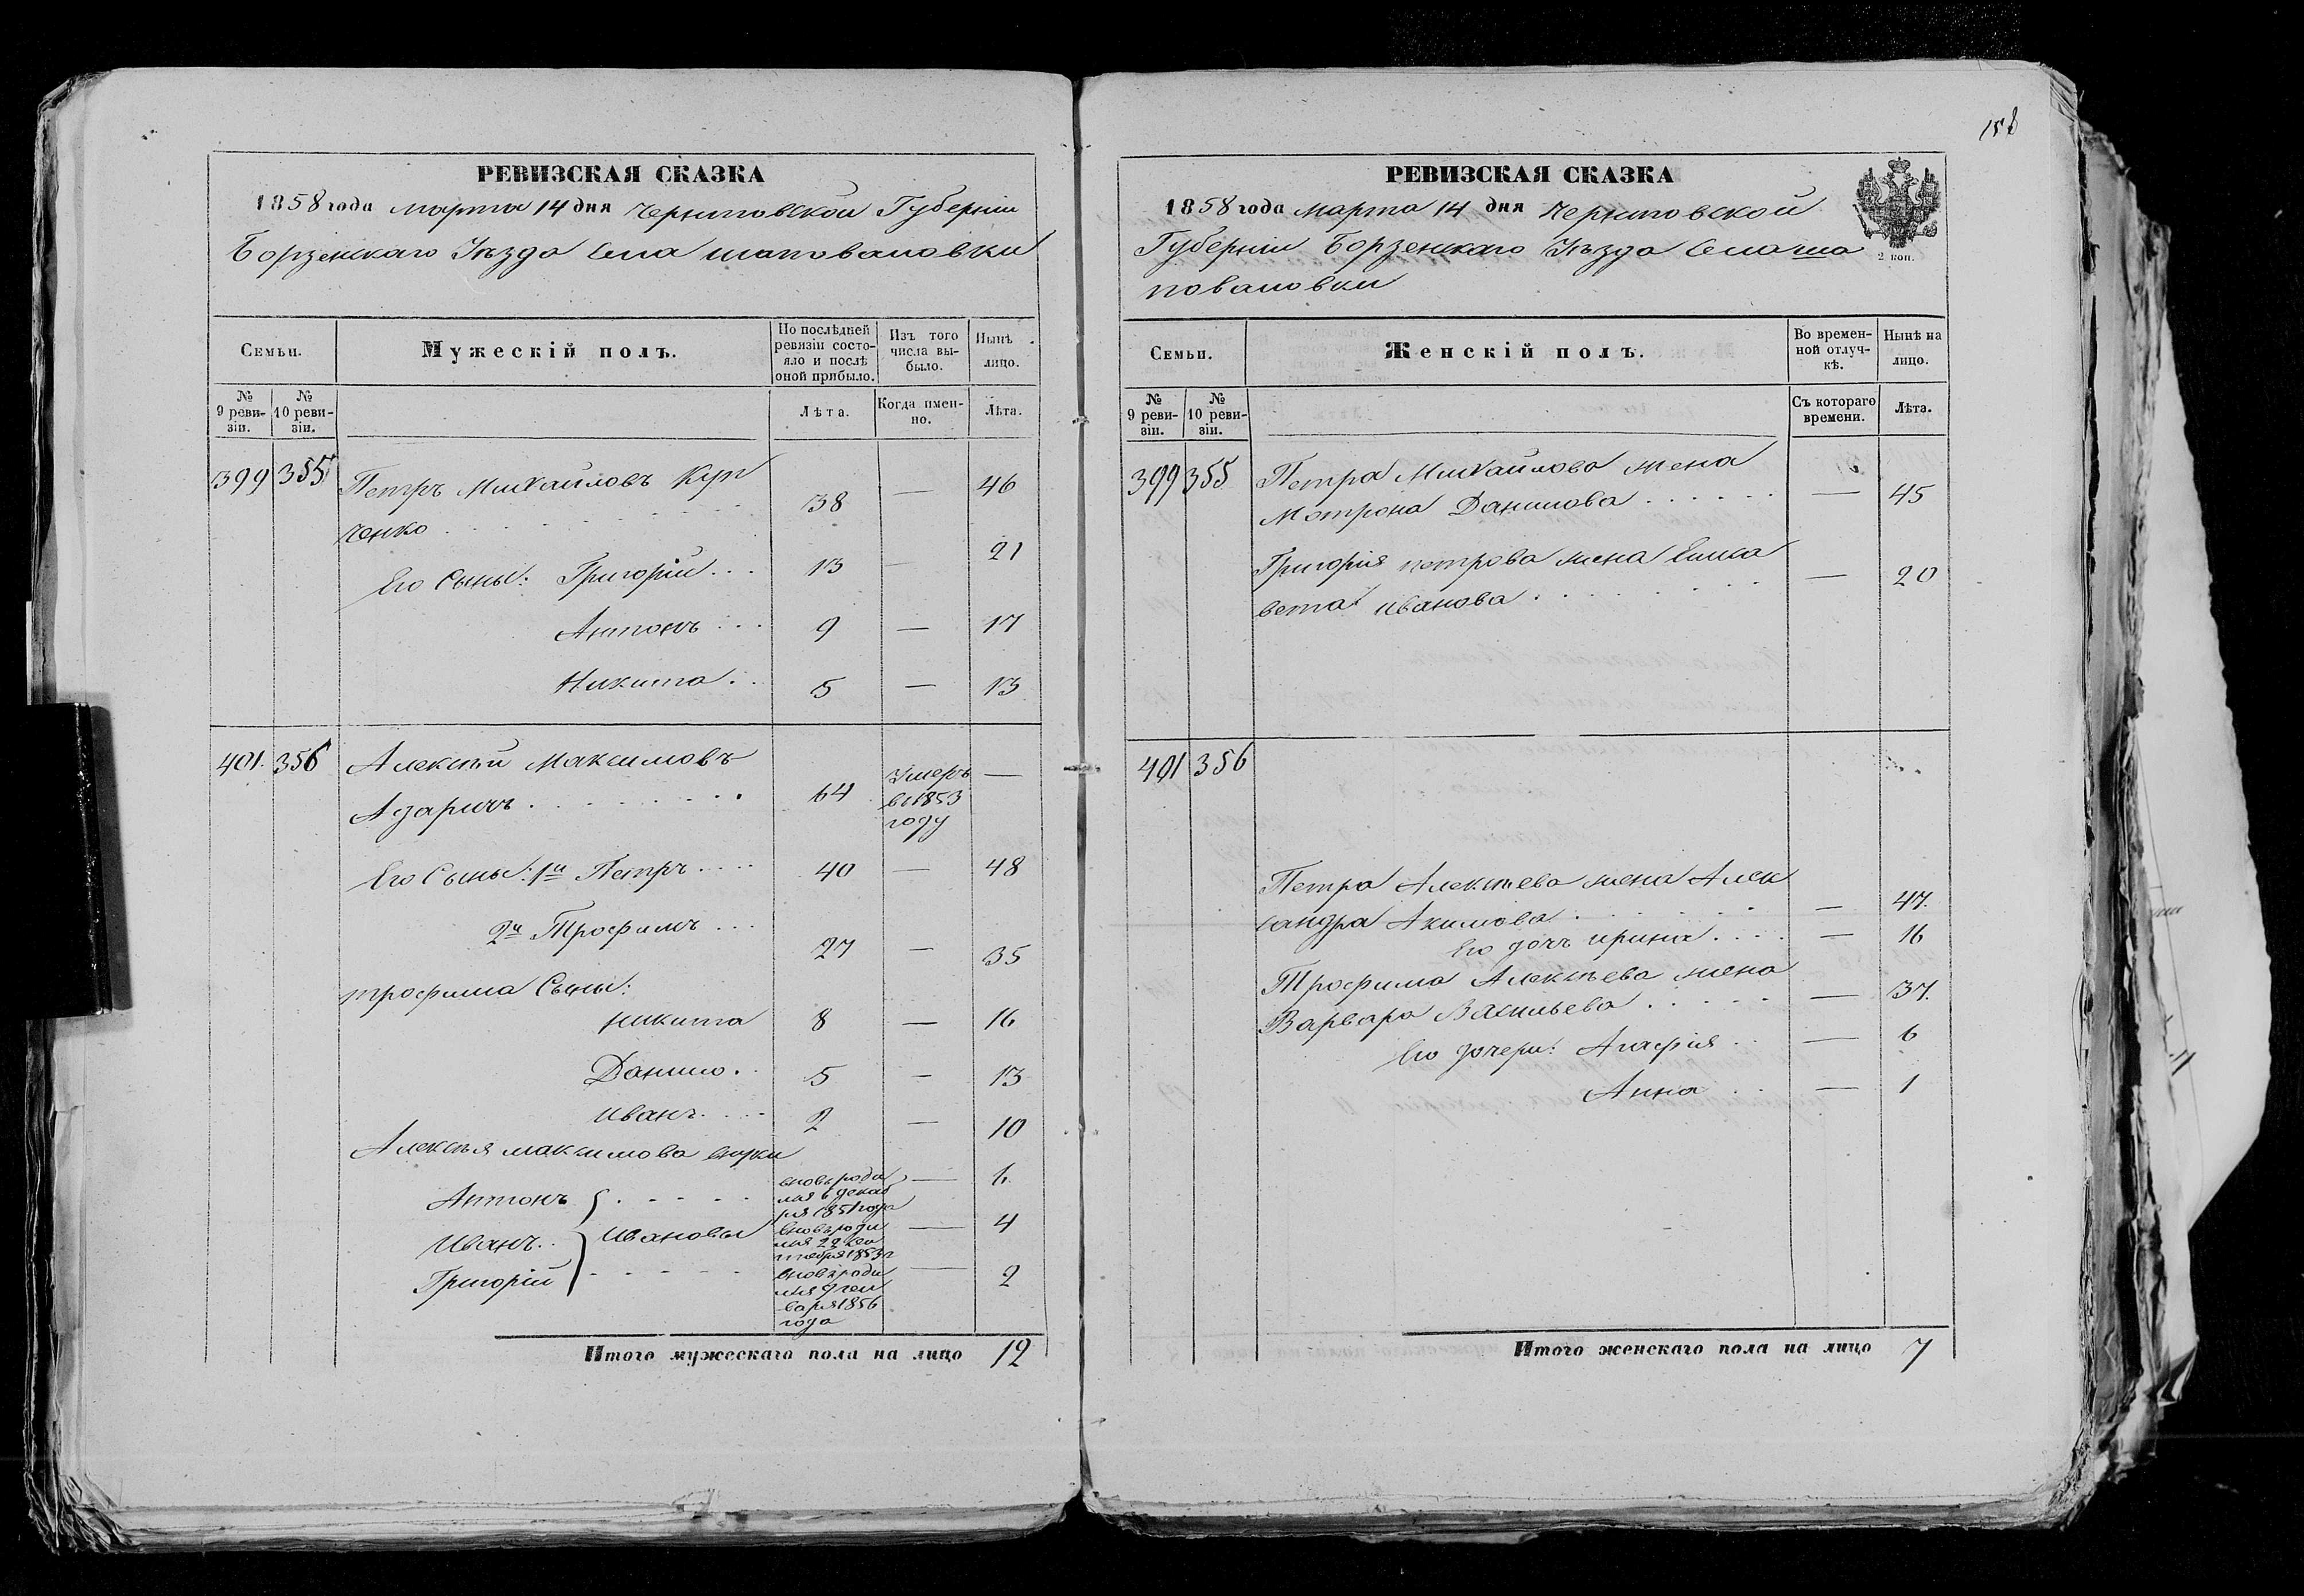 158
РЕВИЗСКАЯ СКАЗКА
1858 года марта 14 дня Черниговской Губерніи
Борзенскаго Уѣзда Села шаповаловки
Семьи.
Мужескій полъ.
По послѣдней ревизіи состояло и послѣ оной прибыло.
Изъ того числа выбыло.
Нынѣ лицо.
№ 9 ревизіи.
№ 10 ревизіи.
Лѣта.
Когда именно.
Лѣта.
399 355 Петръ Михайловъ Кур
ченко 38 — 46
Его Сыны: Григорій 13 — 21
Антонъ 9 — 17
Никита 5 — 13
401. 356 Алексѣй Максимовъ
Азаричъ 64 Умеръ въ 1853 году —
Его Сыны: 1й Петръ 40 — 48
2й Трофимъ 27 — 35
трофима Сыны:
никита 8 — 16
Данило 5 — 13
иванъ 2 — 10
Алексѣя максимова внуки
Антонъ вновь роди
лся 6 декаб
ря 1851 года — 6
Иванъ Ивановы вновь роди
лся 22 сен
тября 1853 г — 4
Григорій вновь роди
лся 9 ген
варя 1856
года — 2
Итого мужескаго пола на лицо 12
РЕВИЗСКАЯ СКАЗКА
1858 года марта 14 дня Черниговской
Губерніи Борзенскаго Уѣзда Села ша
поваловки
2 коп.
Семьи.
Женскій полъ.
Во временной отлучкѣ.
Нынѣ на лицо.
№ 9 ревизіи.
№ 10 ревизіи.
Съ котораго времени.
Лѣта.
399 355 Петра Михайлова жена
Мотрона Данилова — 45
Григорія петрова жена Елиса
вета иванова — 20
401 356
Петра Алексѣева жена Алек
сандра Акимова — 47.
Его дочь ирина — 16
Трофима Алексѣева жена
Варвара Васильева — 37.
Его дочери: Агафія — 6
Анна — 1
Итого женскаго пола на лицо 7